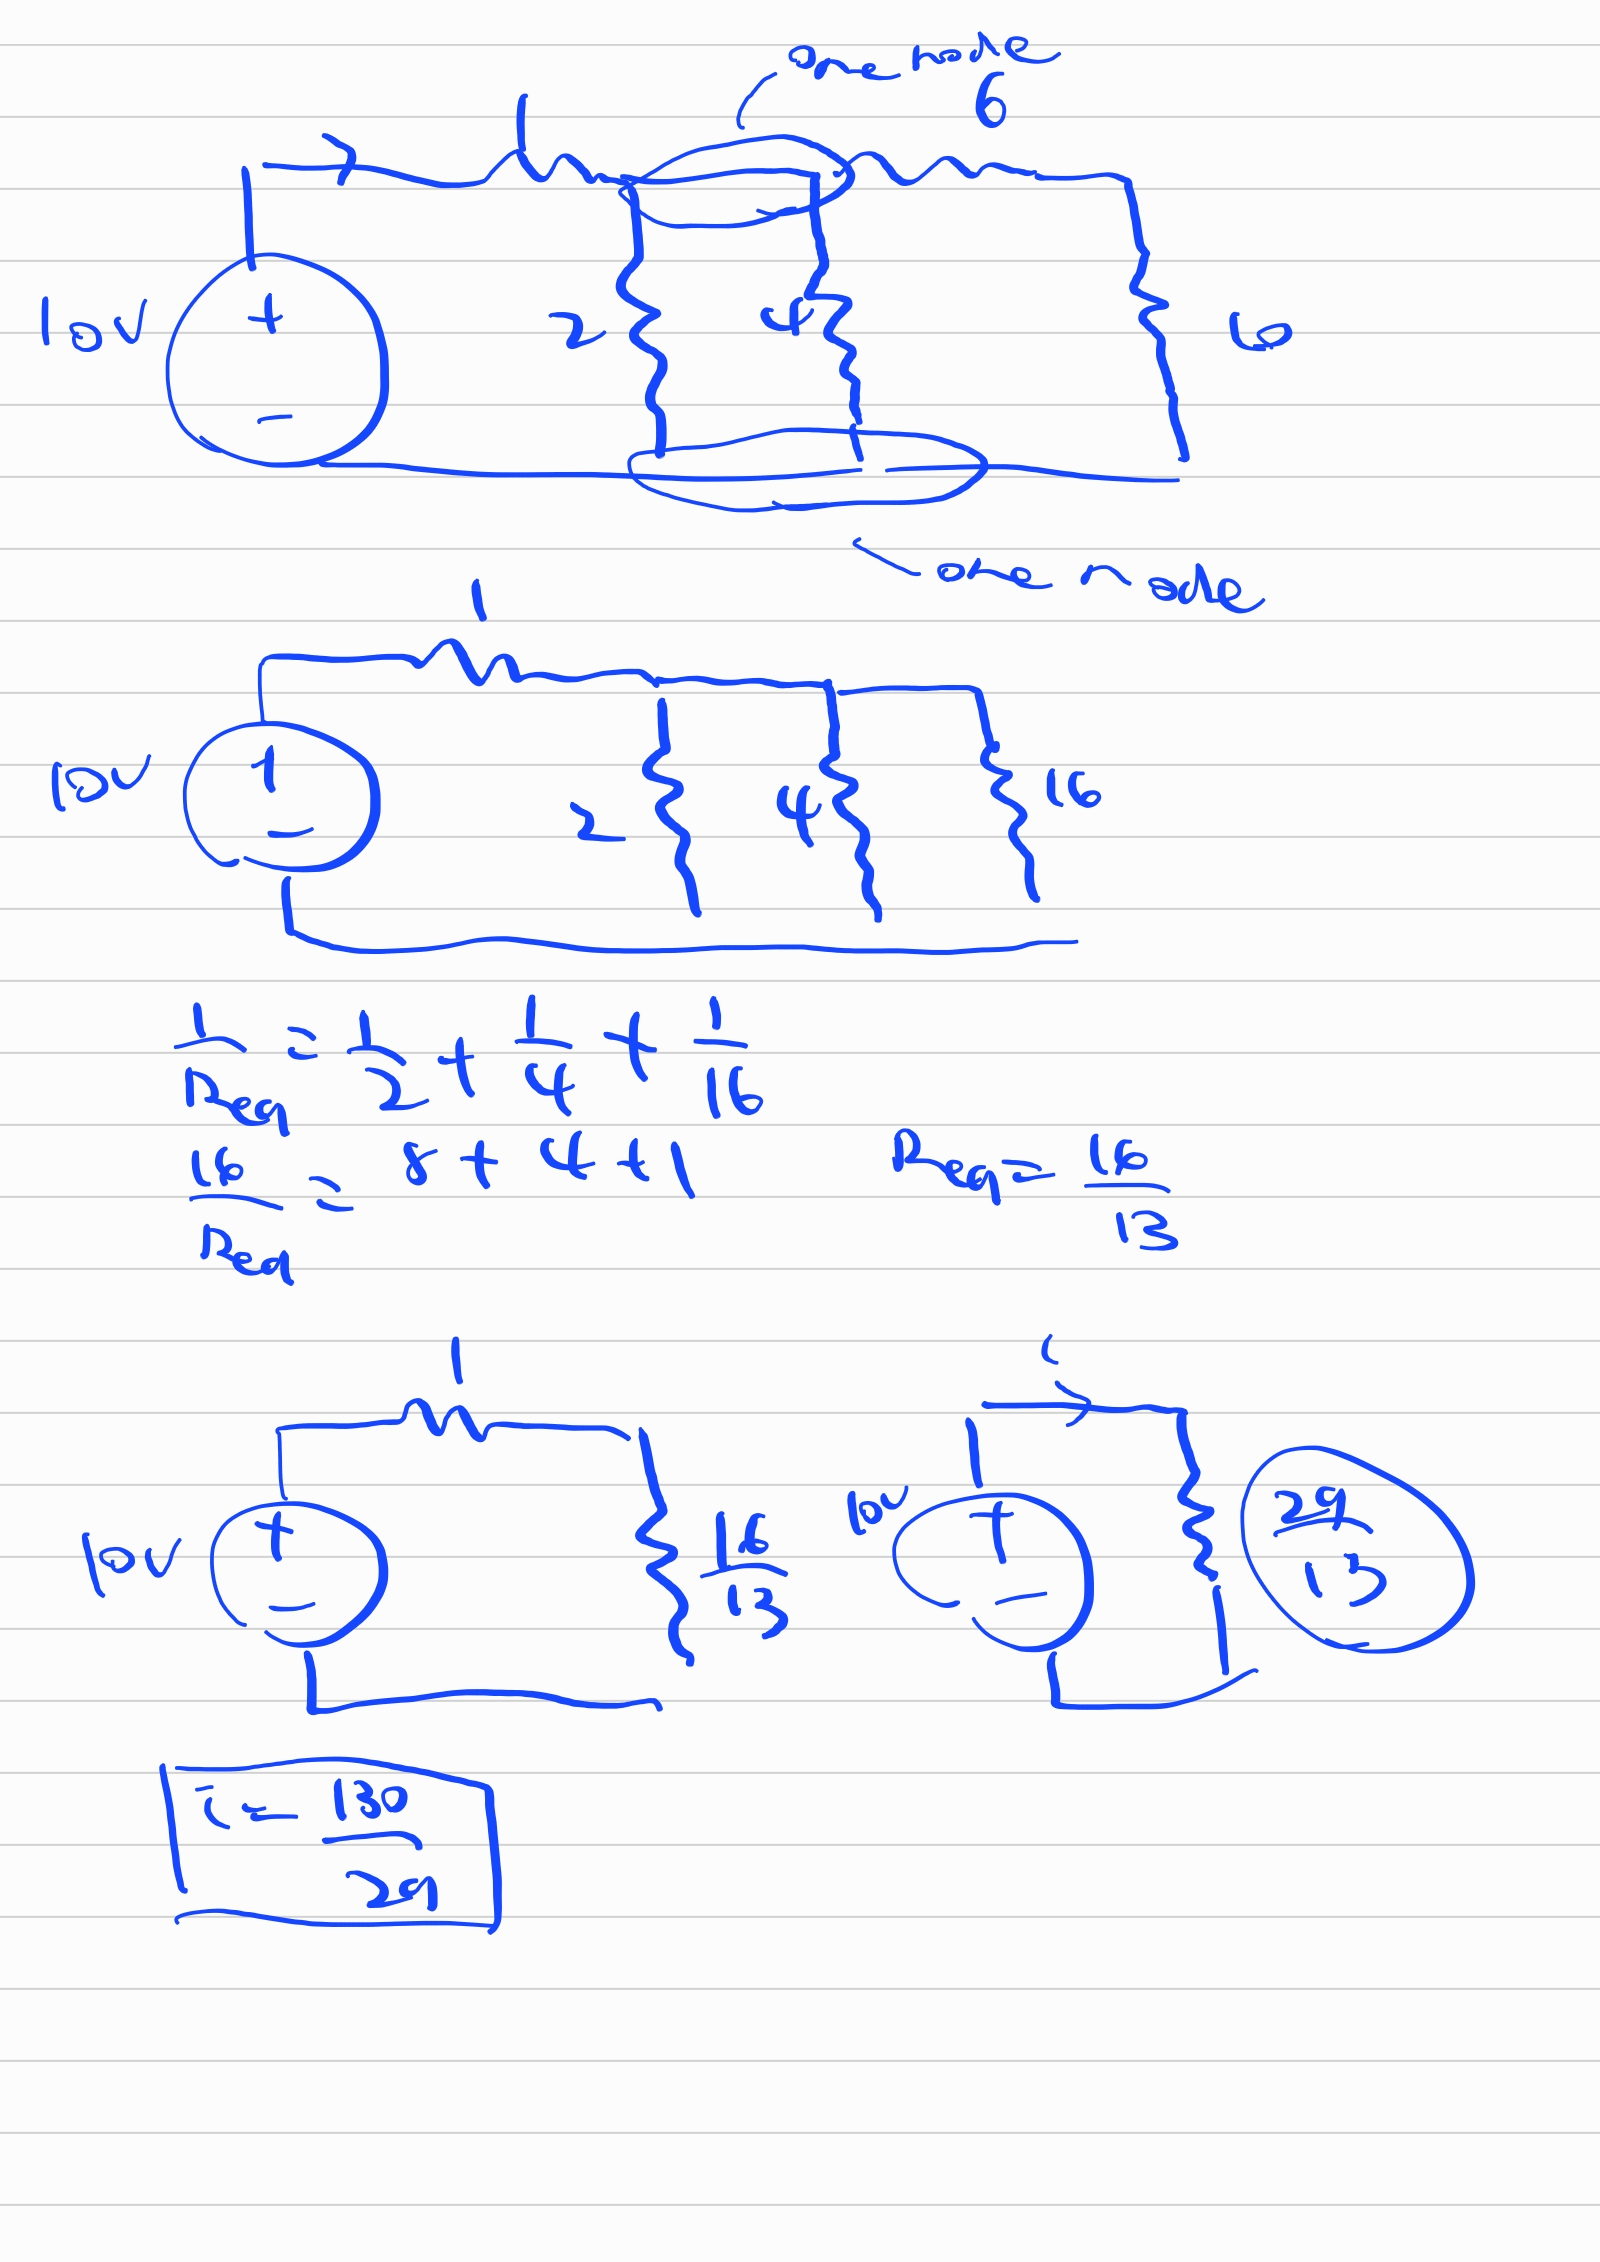 one node
1
6
10V
+
-
2
4
10
one node
1
10V
+
-
2
4
16
1/Req = 1/2 + 1/4 + 1/16
16/Req = 8 + 4 + 1
Req = 16/13
1
10V
+
-
16/13
i
10V
+
-
29/13
i = 130/29